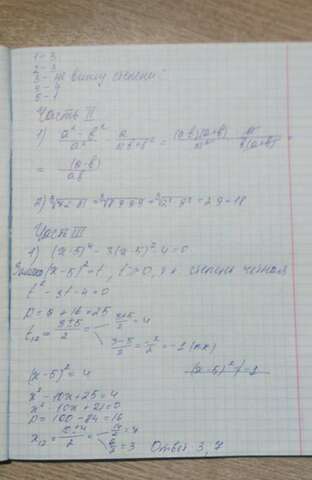 1-3
2-3
3- не вижу степени
5-1
Часть II
1) (a² - b²)/a² · a/(ab+b²) = (a-b)(a+b)/a² · a/b(a+b) =
= (a-b)/ab
= 2·9 = 18
Часть III
1) (x-5)⁴ - 3(x-5)² - 4 = 0
Замена (x-5)² = t, t > 0, т.к степень четная
t² - 3t - 4 = 0
D = 9 + 16 = 25
t₁,₂ = (3±5)/2 = (3+5)/2 = 4
(3-5)/2 = -2/2 = -1 (пк)
(x-5)² = 4 (x-5)² ≠ -1
x² - 10x + 25 = 4
x² - 10x + 21 = 0
D = 100 - 84 = 16
x₁,₂ = (10±4)/2 = 14/2 = 7
6/2 = 3 Ответ 3, 7